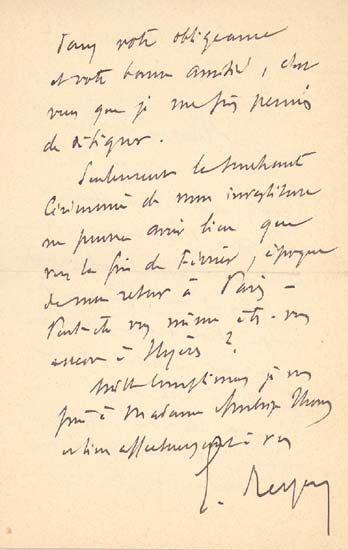 Dans votre obligeance
et votre bonne amitié, c'est
vous que je me suis permis
de désigner.
Seulement la touchante
Cérémonie de mon investiture
ne pourra avoir lieu que
vers la fin de Février, époque
de mon retour à Paris -
Peut-être vous même êtes-vous
encore à Hyères ?
Mille compliments je vous
prie à Madame Ambroise Thomas
et bien affectueusement à vous
E. Reyer